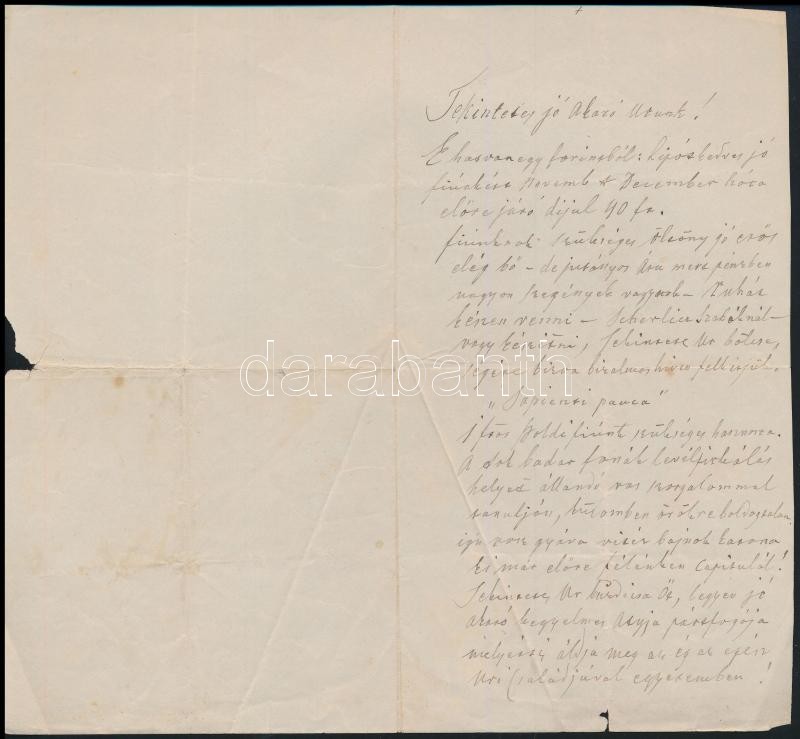 Tekintetes jó Akaró Urunk!
E hatvanegy forintból: kedves jó
fiúnkért Novemb & December hóra
előre járó díjul 40 fr.
fiúnknak szükséges öltöny jó erős
elég bő – de jutányos áru mert pénzben
nagyon szegények vagyunk – Ruhát
készen venni – Scherlice Szabónál –
vagy készitni, Tekintetes Ur bölcse,
ségére bízva bizalmos híven felkérjük.
„Sapienti pauca"
1 frt Zoldi fiúnk szükséges haszonra.
A sok badar levélfirkálás
helyett állandó vas szorgalommal
tanuljon, különben örökre boldogtalan,
igy vitéz bajnok katona
ki már előre félénken capitulál!
Tekintetes Ur Őt, legyen jó
Akaró kegyelmes Atyja pártfogója
melyért áldja meg az ég az egész
Uri családjával egyetemben!
darabanth